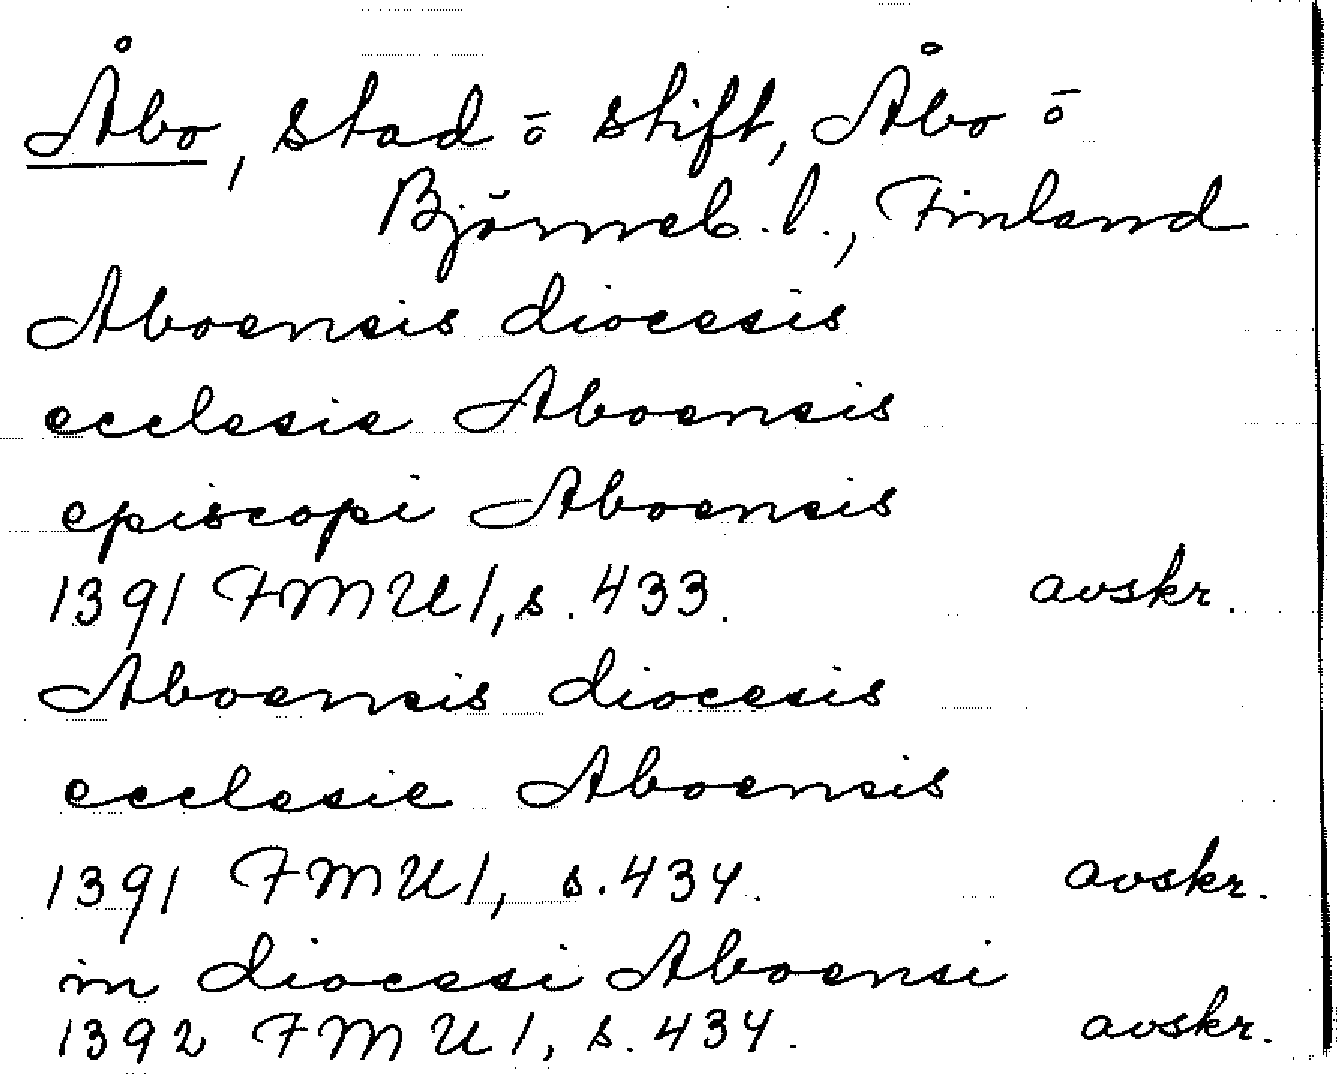 Åbo, stad o stift, Åbo o
Björneb. l., Finland
Aboensis diocesis
ecclesie Aboensis
episcopi Aboensis
1391 FMU 1, s. 433. avskr.
Aboensis diocesis
ecclesie Aboensis
1391 FMU 1, s. 434. avskr.
in diocesi Aboensi
1392 FMU 1, s. 434. avskr.